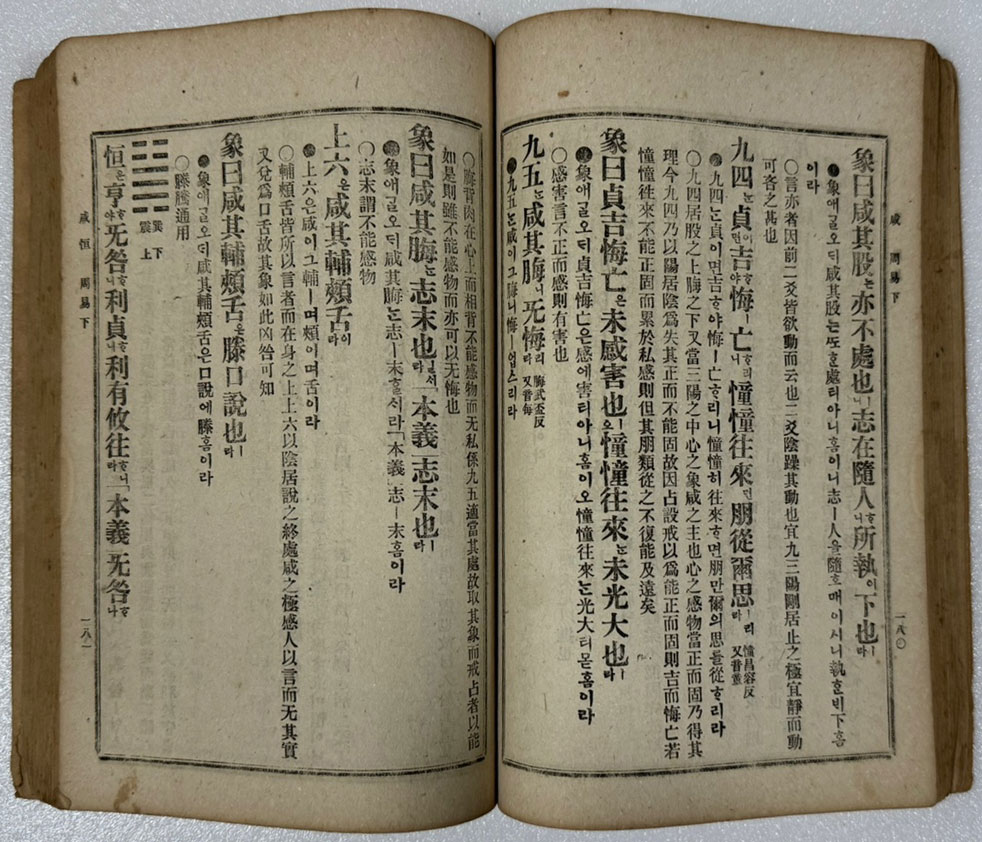 咸 周易下 一八〇
象曰咸其股는亦不處也ㅣ니志在隨人하니所執이下也ㅣ라
●象애ᄀᆞᆯ오ᄃᆡ咸其股는ᄯᅩᄒᆞᆫ處티아니홈이니志ㅣ人을隨호매이시니執ᄒᆞᆫ빈下홈
이라
○言亦者因前二爻皆欲動而云也二爻陰躁其動也宜九三陽剛居止之極宜靜而動
可吝之甚也
九四는貞이면吉ᄒᆞ야悔ㅣ亡ᄒᆞ리니憧憧往來면朋從爾思ㅣ리라憧昌容反又音董
●九四는貞이면吉ᄒᆞ야悔ㅣ亡ᄒᆞ리니憧憧히往來ᄒᆞ면朋만爾의思를從ᄒᆞ리라
○九四居股之上脢之下又當三陽之中心之象咸之主也心之感物當正而固乃得其
理今九四乃以陽居陰爲失其正而不能固故因占設戒以爲能正而固則吉而悔亡若
憧憧往來不能正固而累於私感則但其朋類從之不復能及遠矣
象曰貞吉悔亡은未感害也ㅣ오憧憧往來는未光大也ㅣ라
●象애ᄀᆞᆯ오ᄃᆡ貞吉悔亡은感에害티아니홈이오憧憧往來는光大티몯홈이라
○感害言不正而感則有害也
九五는咸其脢니无悔리라脢武盃反又音每
●九五는咸이그脢니悔ㅣ업스리라
○脢背肉在心上而相背不能感物而无私係九五適當其處故取其象而戒占者以能
如是則雖不能感物而亦可以无悔也
象曰咸其脢는志末也ㅣᆯᄉᆡ라「本義」志末也ㅣ라
●象애ᄀᆞᆯ오ᄃᆡ咸其脢는志ㅣ末ᄒᆞᆯᄉᆡ라「本義」志ㅣ末홈이라
○志末謂不能感物
上六은咸其輔頰舌이라
●上六은咸이그輔ㅣ며頰이며舌이라
○輔頰舌皆所以言者而在身之上上六以陰居說之終處咸之極感人以言而无其實
又兌爲口舌故其象如此凶咎可知
象曰咸其輔頰舌은滕口說也ㅣ라
●象애ᄀᆞᆯ오ᄃᆡ咸其輔頰舌은口說에滕홈이라
○滕騰通用
巽下
震上
恒은亨ᄒᆞ야无咎ᄒᆞ니利貞ᄒᆞ니利有攸往ᄒᆞ니라「本義」无咎ᄒᆞ나
咸恒 周易下 一八一